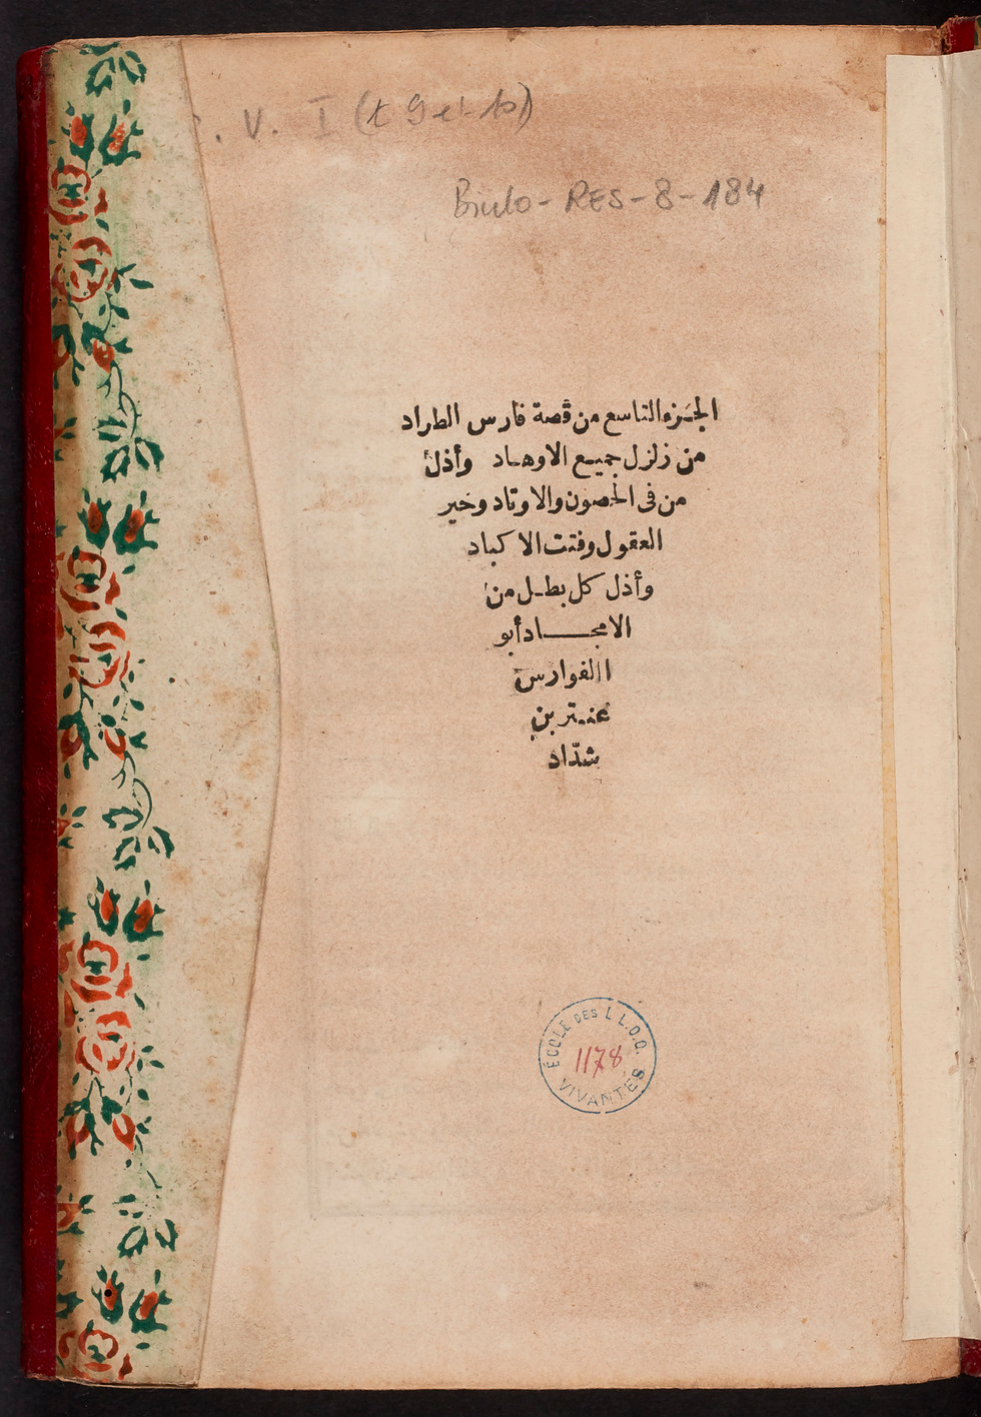 V. I (t 9 et 10)
Biulo-RES-8-184
الجزء التاسع من قصة فارس الطراد
من زلزل جميع الاوهاد وأذل
من فى الحصون والاوتاد وخير
العقول وفتت الاكباد
وأذل كل بطل من
الامجاد أبو
الفوارس
عنتر بن
شدّاد
ECOLE DES L L.O.O.
1178
VIVANTES